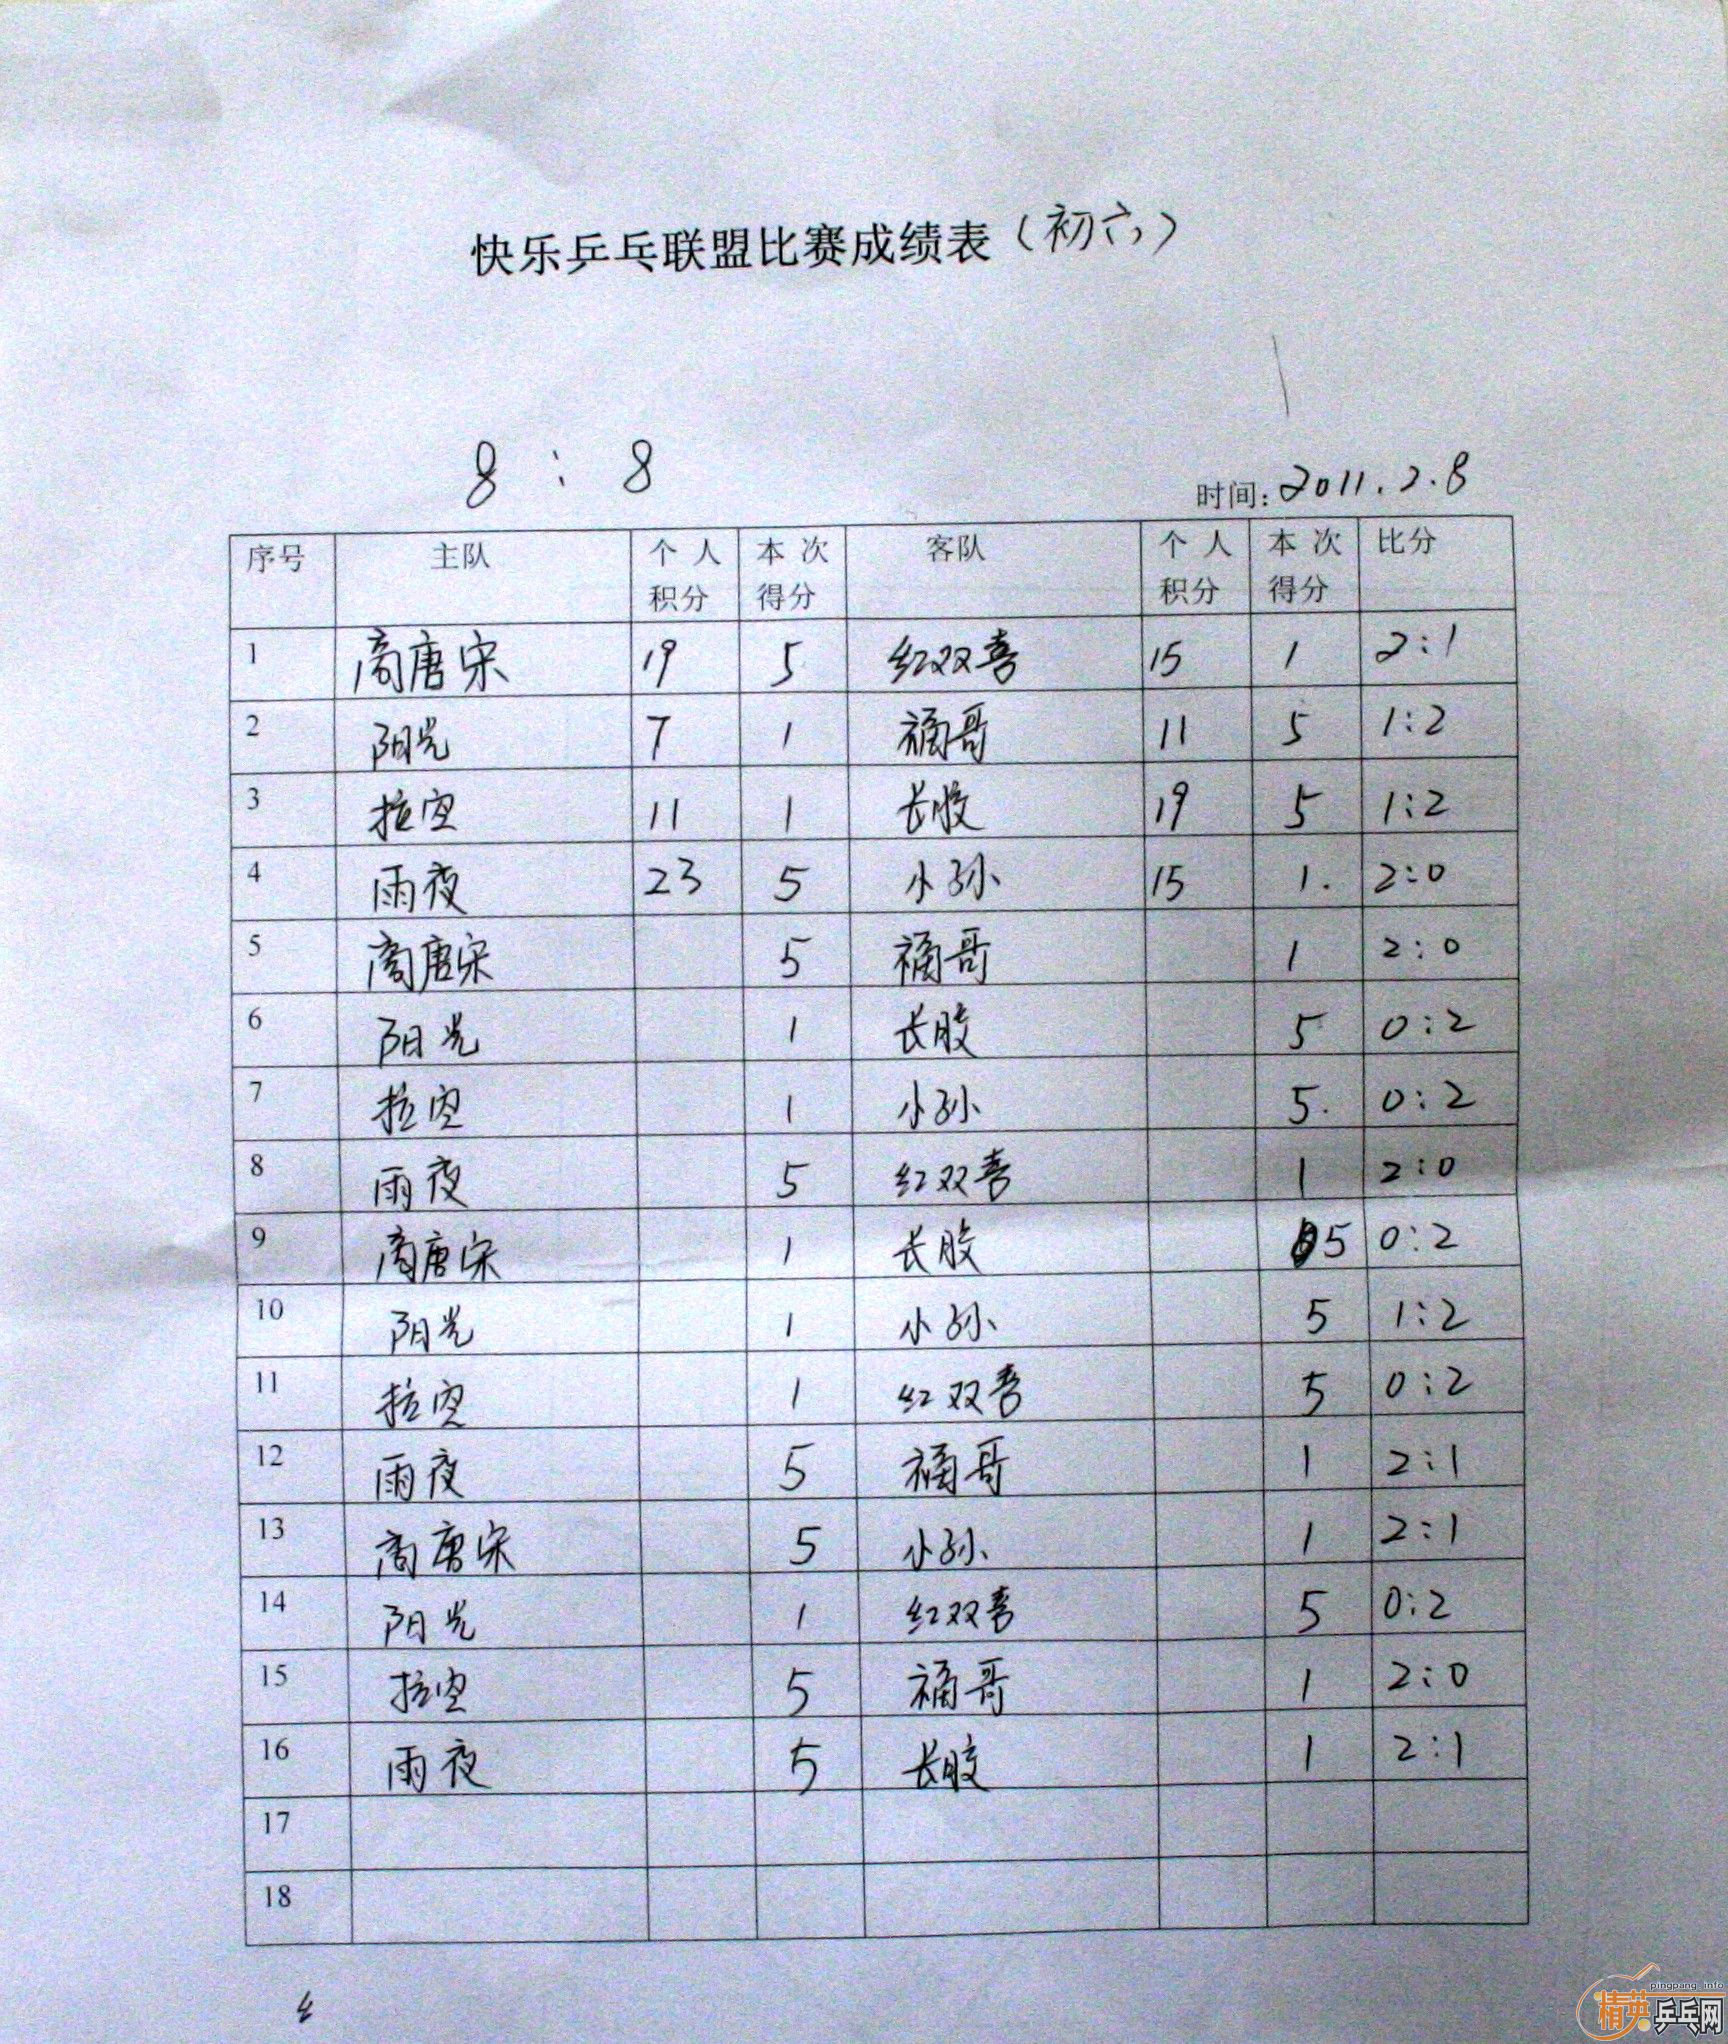 快乐乒乓联盟比赛成绩表（初六）
8 : 8
时间: 2011.2.8
序号 主队 个人积分 本次得分 客队 个人积分 本次得分 比分
1 商唐宋 19 5 红双喜 15 1 2:1
2 阳光 7 1 福哥 11 5 1:2
3 拉空 11 1 长胶 19 5 1:2
4 雨夜 23 5 小孙 15 1. 2:0
5 商唐宋 5 福哥 1 2:0
6 阳光 1 长胶 5 0:2
7 拉空 1 小孙 5. 0:2
8 雨夜 5 红双喜 1 2:0
9 商唐宋 1 长胶 5 0:2
10 阳光 1 小孙 5 1:2
11 拉空 1 红双喜 5 0:2
12 雨夜 5 福哥 1 2:1
13 商唐宋 5 小孙 1 2:1
14 阳光 1 红双喜 5 0:2
15 拉空 5 福哥 1 2:0
16 雨夜 5 长胶 1 2:1
17
18
pingpang.info
精英乒乓网